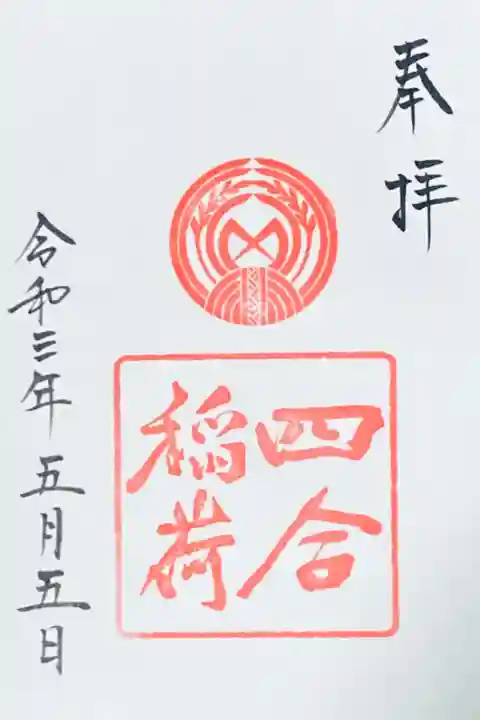 奉拝
四合
稲荷
令和三年五月五日